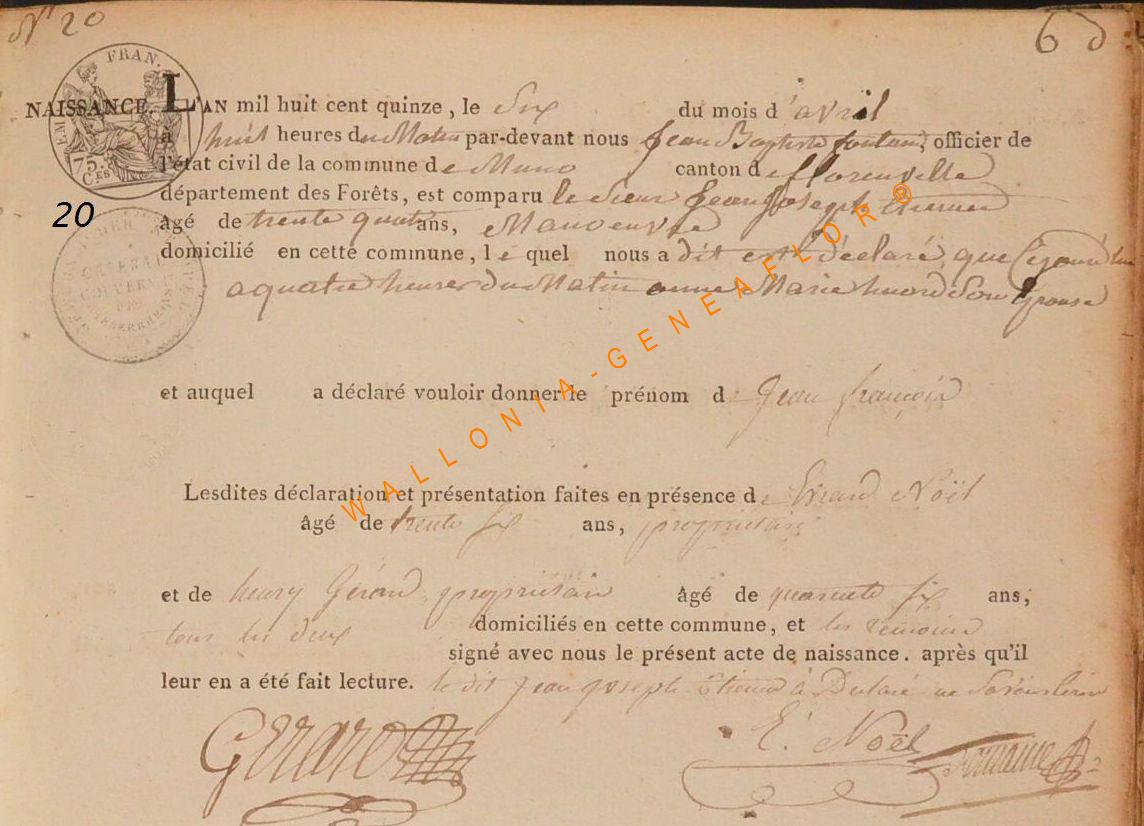 N° 20
6
FRAN.
75.
C.ES
20
NAISSANCE. L'AN mil huit cent quinze, le Six du mois d'avril
à huit heures du Matin par-devant nous Jean Baptiste fontaine, officier de
l'état civil de la commune de Muno canton de florenville
département des Forêts, est comparu le Sieur Jean Joseph Etienne
âgé de trente quatre ans, Manoeuvre
domicilié en cette commune, le quel nous a dit et déclaré que Cejourd'hui
a quatre heures du Matin anne Marie huard Son Epouse
et auquel a déclaré vouloir donner le prénom de Jean françois
Lesdites déclaration et présentation faites en présence de Erard Noël
âgé de trente six ans, propriétaire
et de henry Gérard propriétaire âgé de quarante six ans,
tous les deux domiciliés en cette commune, et les témoins
signé avec nous le présent acte de naissance. après qu'il
leur en a été fait lecture. le dit Jean Joseph Etienne à Declaré ne Savoir
GERARD
E. Noël
WALLONIA-GENEAFLOR®